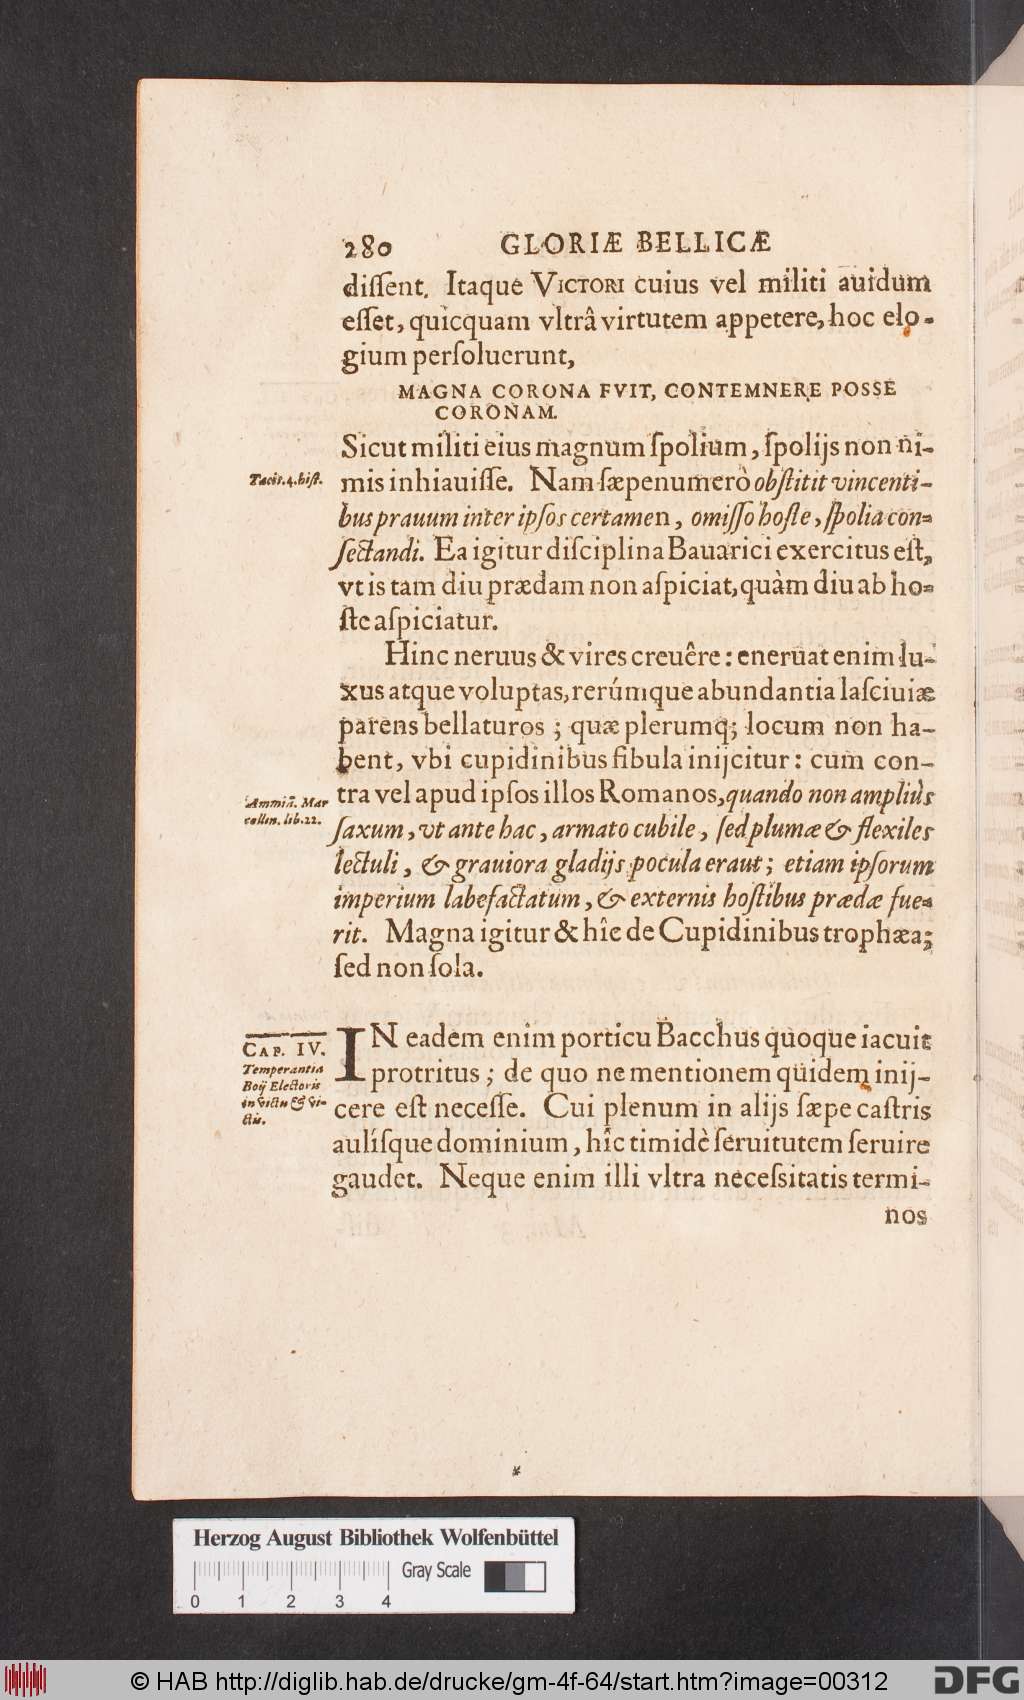 280 GLORIÆ BELLICÆ
dissent. Itaque VICTORI cuius vel militi auidum
esset, quicquam vltrâ virtutem appetere, hoc elo-
gium persoluerunt,
MAGNA CORONA FVIT, CONTEMNERE POSSE
CORONAM.
Sicut militi eius magnum spolium, spolijs non ni-
Tacit. 4. hist.
mis inhiauisse. Nam sæpenumerò obstitit vincenti-
bus prauum inter ipsos certamen, omisso hoste, spolia con-
sectandi. Ea igitur disciplina Bauarici exercitus est,
vt is tam diu prædam non aspiciat, quàm diu ab ho-
ste aspiciatur.
Hinc neruus & vires creuêre: eneruat enim lu-
xus atque voluptas, rerúmque abundantia lasciuiæ
parens bellaturos; quæ plerumq; locum non ha-
bent, vbi cupidinibus fibula inijcitur: cum con-
Ammiã. Mar
cellin. lib. 22.
tra vel apud ipsos illos Romanos, quando non ampliùs
saxum, vt ante hac, armato cubile, sed plumæ & flexiles
lectuli, & grauiora gladijs pocula eraut; etiam ipsorum
imperium labefactatum, & externis hostibus prædæ fue-
rit. Magna igitur & hîc de Cupidinibus trophæa;
sed non sola.
CAP. IV.
Temperantia
Boij Electoris
in victu & vi-
ctis.
IN eadem enim porticu Bacchus quoque iacuit
protritus; de quo ne mentionem quidem inij-
cere est necesse. Cui plenum in alijs sæpe castris
aulísque dominium, hîc timidè seruitutem seruire
gaudet. Neque enim illi vltra necessitatis termi-
nos
Herzog August Bibliothek Wolfenbüttel
Gray Scale
0 1 2 3 4
© HAB http://diglib.hab.de/drucke/gm-4f-64/start.htm?image=00312
DFG